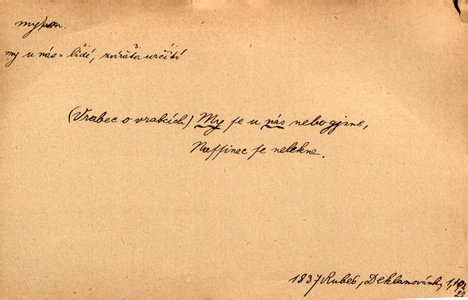 my pron.
my u nás = lidé, zvířata určití
(Vrabec o vrabcích) My je u nás nebogjme,
Naſſinec ſe nelekne.
1837 Rubeš, Deklamovánky,